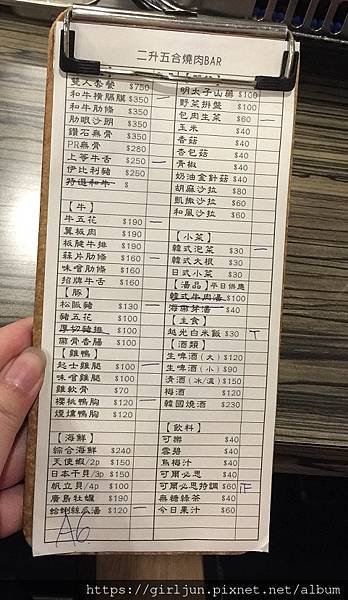 二升五合燒肉BAR
雙人套餐 $750
和牛橫膈膜 $350 一
和牛肋條 $350
肋眼沙朗 $350
鑽石無骨 $350
PR無骨 $280
上等牛舌 $250 一
伊比利豬 $250
特選和牛 $
【牛】
牛五花 $190 一
翼板肉 $190
板腱牛排 $190
蒜片肋條 $160 一
味噌肋條 $160
招牌牛舌 $160
【豚】
松阪豬 $130 一
豬五花 $100
厚切豬排 $100
帶骨香腸 $100
【雞鴨】
起士雞腿 $100 一
味噌雞腿 $100
雞軟骨 $70
櫻桃鴨胸 $120
煙燻鴨胸 $120
【海鮮】
綜合海鮮 $240
天使蝦/2p $150
日本干貝/3p $150
帆立貝/4p $100
廣島牡蠣 $190
蛤蜊絲瓜湯 $120 一
A6
明太子山藥 $100
野菜拼盤 $100
包肉生菜 $60 一
玉米 $40
香菇 $40
杏包菇 $40
青椒 $40
奶油金針菇 $40
胡麻沙拉 $80
凱撒沙拉 $60
和風沙拉 $60
【小菜】
韓式泡菜 $30 一
韓式大根 $30
日式小菜 $30
【湯品】平日供應
韓式牛肉湯 $100
海帶芽湯 $40
【主食】
越光白米飯 $30 T
【酒類】
生啤酒(大) $120
生啤酒(小) $90
清酒(冰/溫) $150
梅酒 $120
韓國燒酒 $230
【飲料】
可樂 $40
雪碧 $40
烏梅汁 $40
可爾必思 $40
可爾必思特調 $60
無糖綠茶 $40
今日果汁 $60
https://girljun.pixnet.net/album